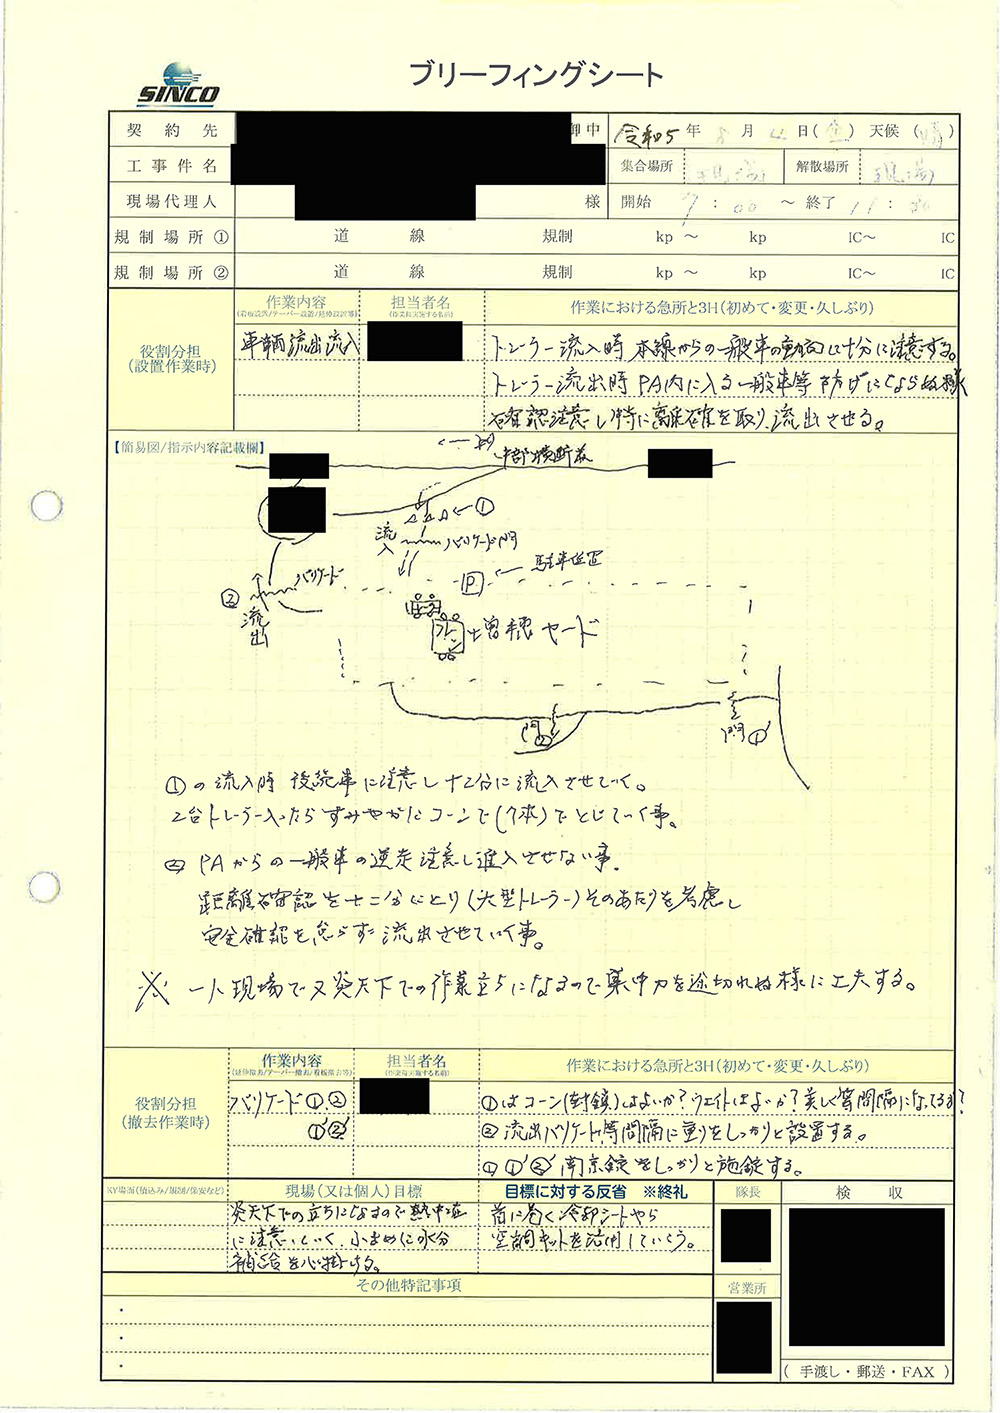 SINCO
ブリーフィングシート
契約先 御中 令和5年 8月4日(金) 天候(晴)
工事件名 集合場所 現場 解散場所 現場
現場代理人 様 開始 7:00 ～ 終了 11:30
規制場所① 道 線 規制 kp ～ kp IC～ IC
規制場所② 道 線 規制 kp ～ kp IC～ IC
役割分担
(設置作業時)
作業内容
(看板設置/テーパー設置/延伸設置等)
担当者名
(作業を実施する名前)
作業における急所と3H(初めて・変更・久しぶり)
車輌流出流入
トレーラー流入時 本線からの一般車の動向に十分に注意する。
トレーラー流出時 PA内に入る一般車等 妨げにならぬ様
確認注意し特に離隔を取り、流出させる。
【簡易図/指示内容記載欄】
中部横断道
①
流入
バリケード門
駐車位置
P
バリケード
②
流出
増穂ヤード
門②'
門①'
①の流入時 後続車に注意し十2分に流入させていく。
2台トレーラー入ったらすみやかにコーンで(7本)でとじていく事。
② PAからの一般車の逆走注意し進入させない事。
距離確認を十二分にとり(大型トレーラー)そのあたりを考慮し
安全確認を怠らず流出させていく事。
※ 一人現場で又炎天下での作業立ちになるので集中力を途切れぬ様に工夫する。
役割分担
(撤去作業時)
作業内容
(延伸撤去/テーパー撤去/看板撤去等)
担当者名
(作業を実施する名前)
作業における急所と3H(初めて・変更・久しぶり)
バリケード①.②
①'②'
①はコーン(封鎖)はよいか?ウエイトはよいか?美しく等間隔になってるか?
② 流出バリケード等間隔に重りをしっかりと設置する。
①'②' 南京錠をしっかりと施錠する。
KY場面(積込み/規制/保安など)
現場(又は個人)目標
目標に対する反省 ※終礼
隊長
検収
炎天下での立ちになるので熱中症
に注意していく、小まめに水分
補給を心掛ける。
首に巻く冷却シートやら
空調キットを活用していこう。
営業所
その他特記事項
・
・
・
(手渡し・郵送・FAX)